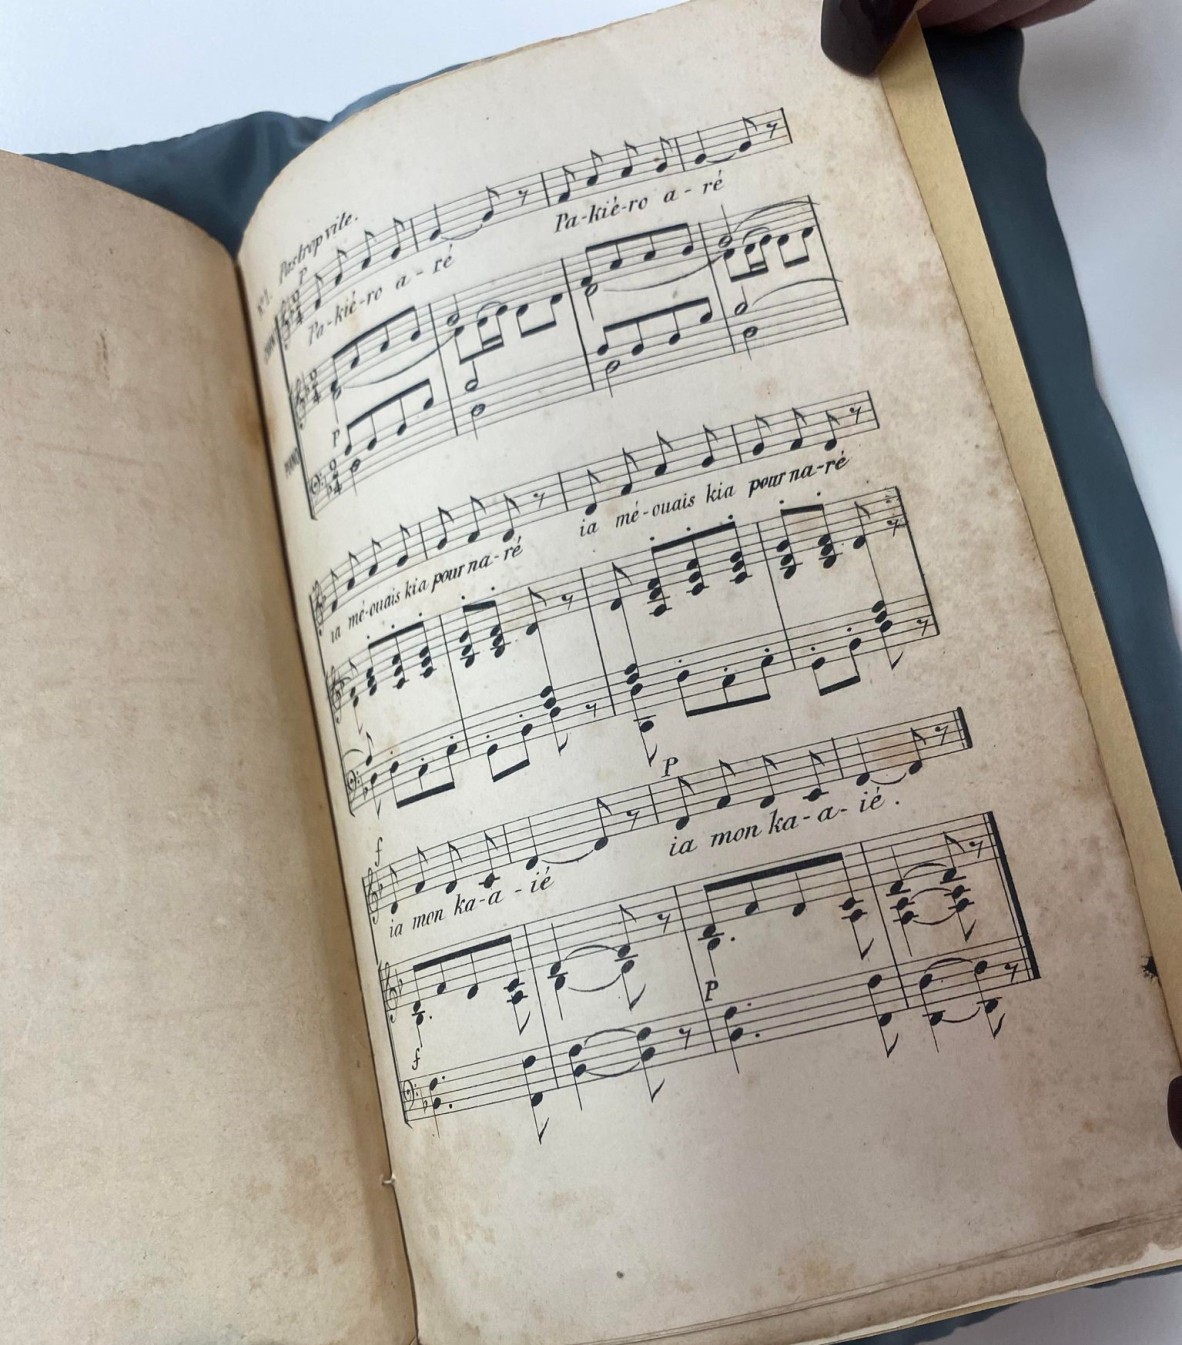 Nº1. Pas trop vite.
P
Pa-kié-ro a - ré Pa-kié-ro a - ré
P
ia mé-ouais kia pour na-ré ia mé-ouais kia pour na-ré
f P
ia mon ka-a - ié ia mon ka-a- ié .
P
f